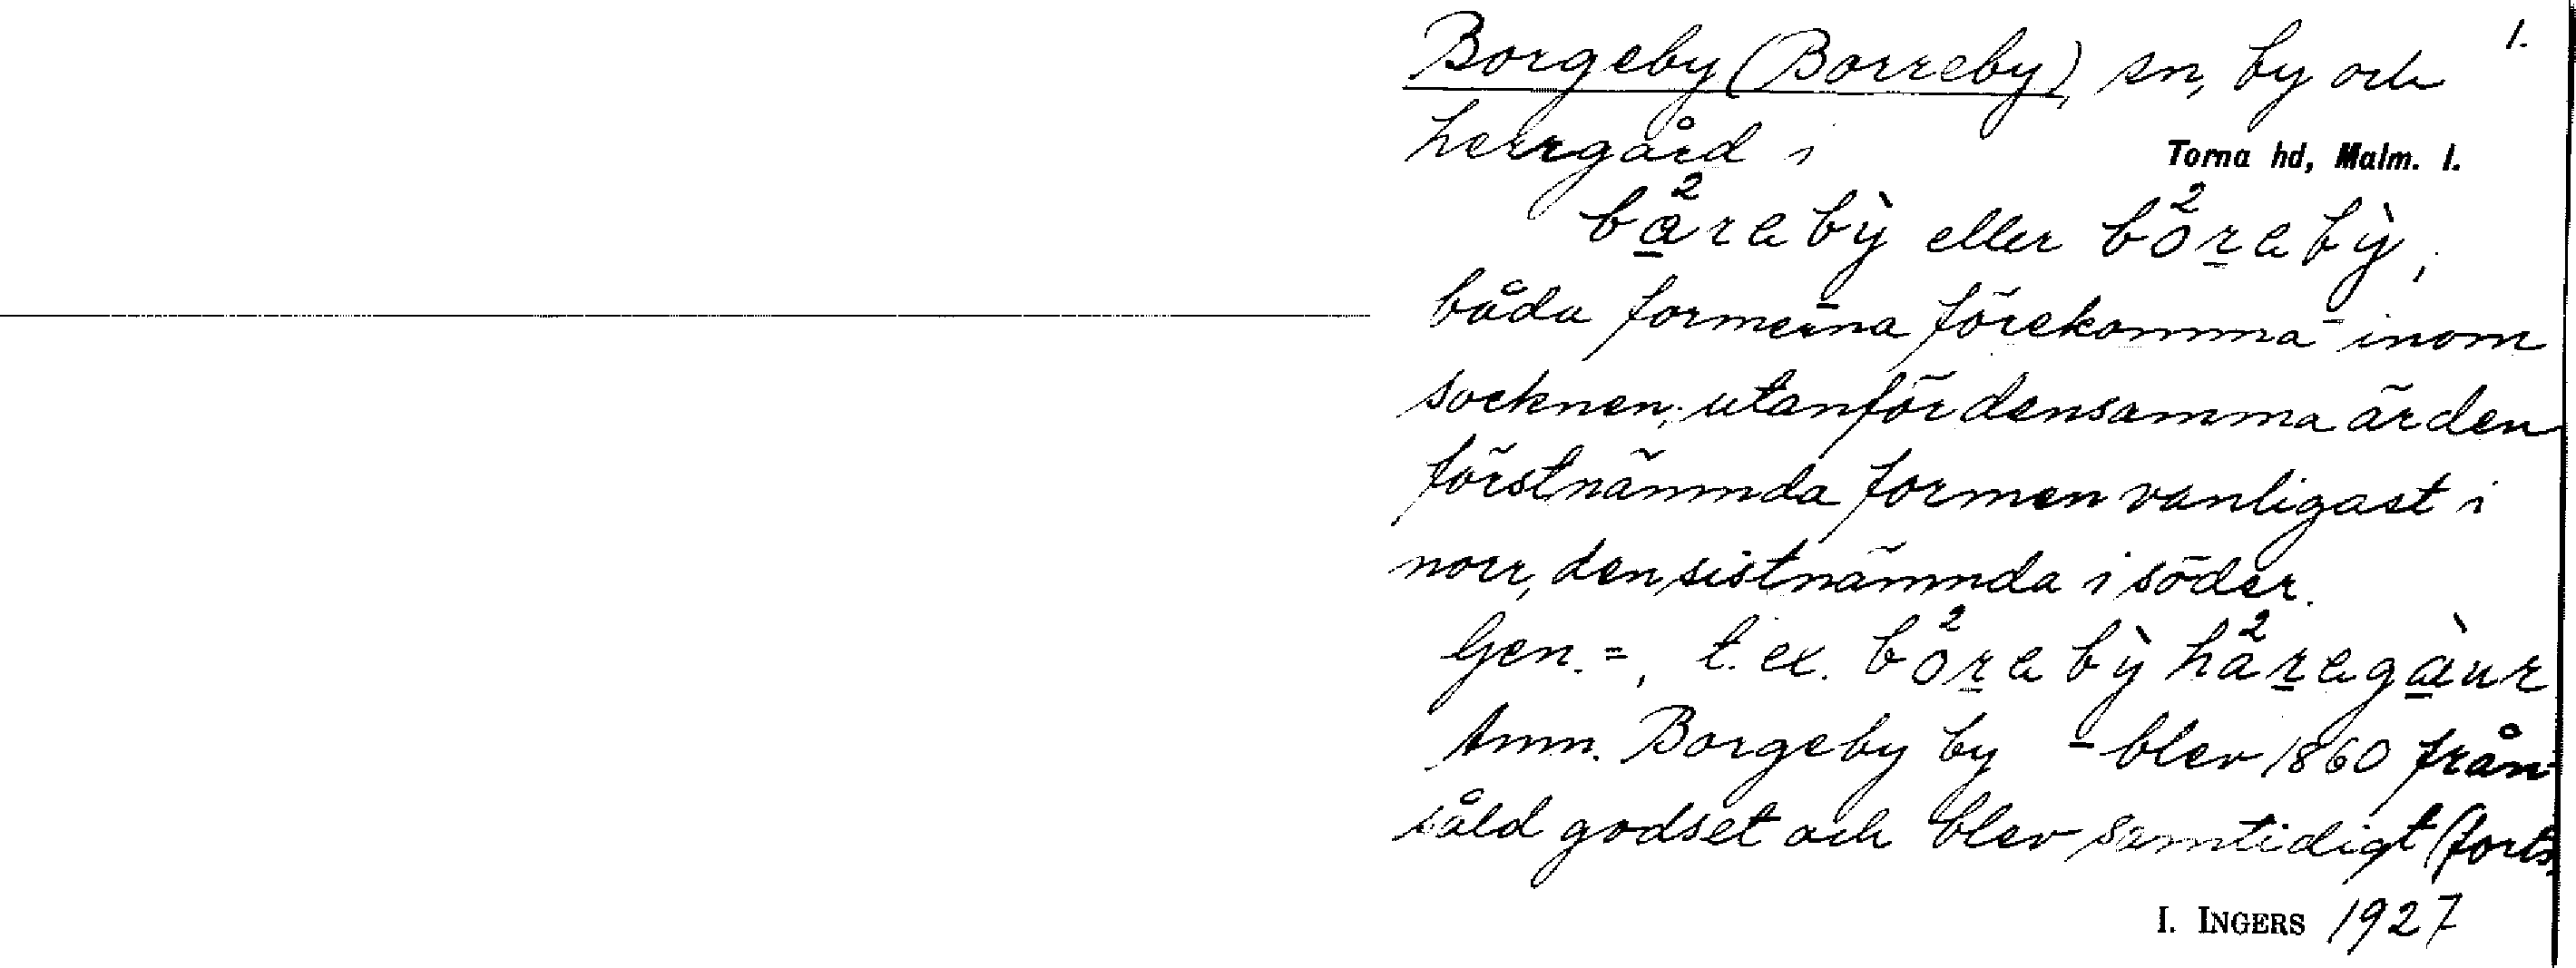 1.
Borgeby (Borreby), sn, by och
herrgård i Torna hd, Malm. l.
bå²rebỳ eller bö²rebỳ,
båda formerna förekomma inom
socknen; utanför densamma är den
förstnämnda formen vanligast i
norr, den sistnämnda i söder.
Gen. =, t. ex. bö²rebỳ hå²regàur
Anm. Borgeby by - blev 1860 från-
såld godset och blev samtidigt (forts.
I. INGERS 1927